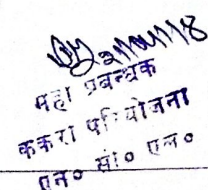 महा प्रबन्धक
ककरी परियोजना
एन० सी० एल०